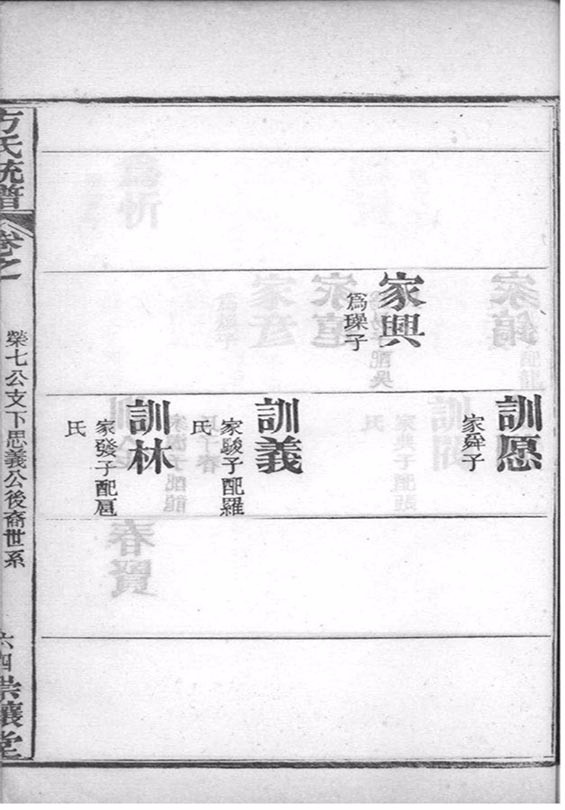 家興
爲璪子
訓愿
家舜子
訓義
家駿子配羅
氏
訓林
家發子配扈
氏
方氏統譜
卷之
榮七公支下思義公後裔世系
六四
崇讓堂